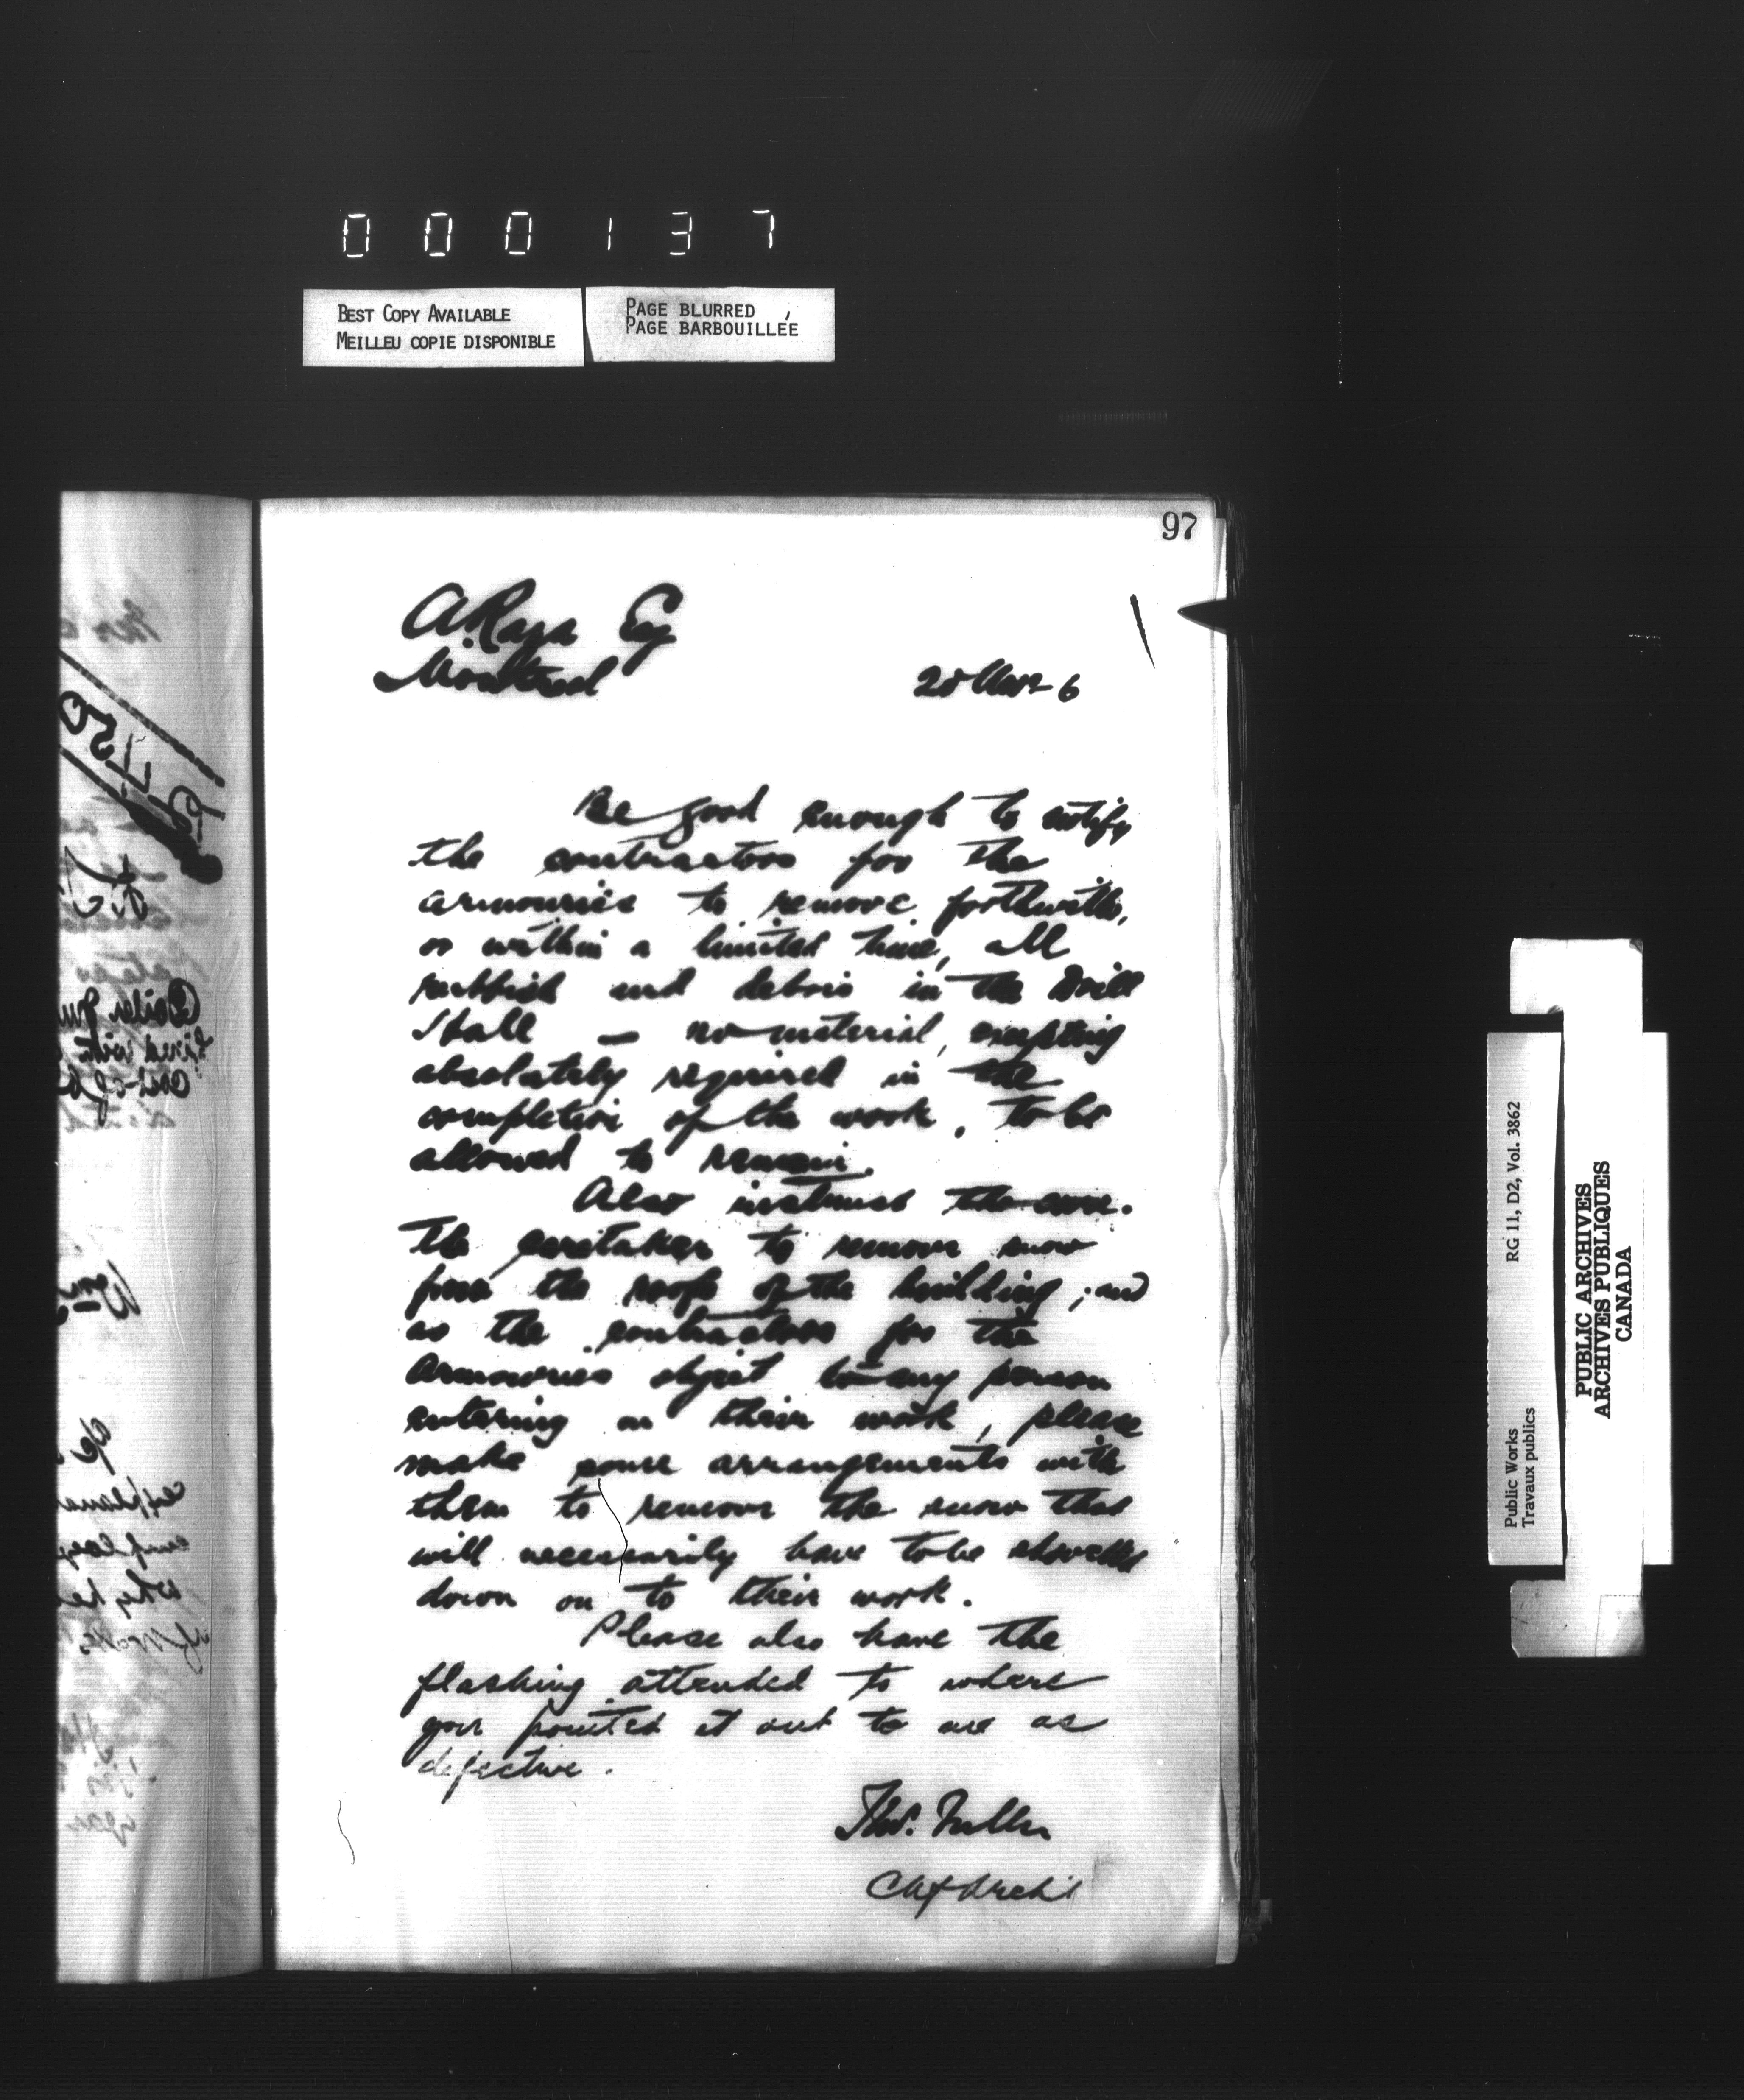 000137
BEST COPY AVAILABLE
MEILLEU COPIE DISPONIBLE
PAGE BLURRED
PAGE BARBOUILLÉE
97
A. Raza Esq
Montreal
20 Mar 6
Be good enough to notify
the contractors for the
armouries to remove forthwith,
or within a limited time, all
rubbish and debris in the Drill
Hall — no material, excepting
absolutely required in the
completion of the work, to be
allowed to remain.
Also instruct the care.
the caretaker to remove snow
from the roofs of the building; and
as the contractors for the
Armouries object to any person
entering on their work, please
make some arrangements with
them to remove the snow that
will necessarily have to be shovelled
down on to their work.
Please also have the
flashing attended to where
you pointed it out to me as
defective.
Thos. Fuller
Chf Archt
Public Works
Travaux publics
RG 11, D2, Vol. 3862
PUBLIC ARCHIVES
ARCHIVES PUBLIQUES
CANADA